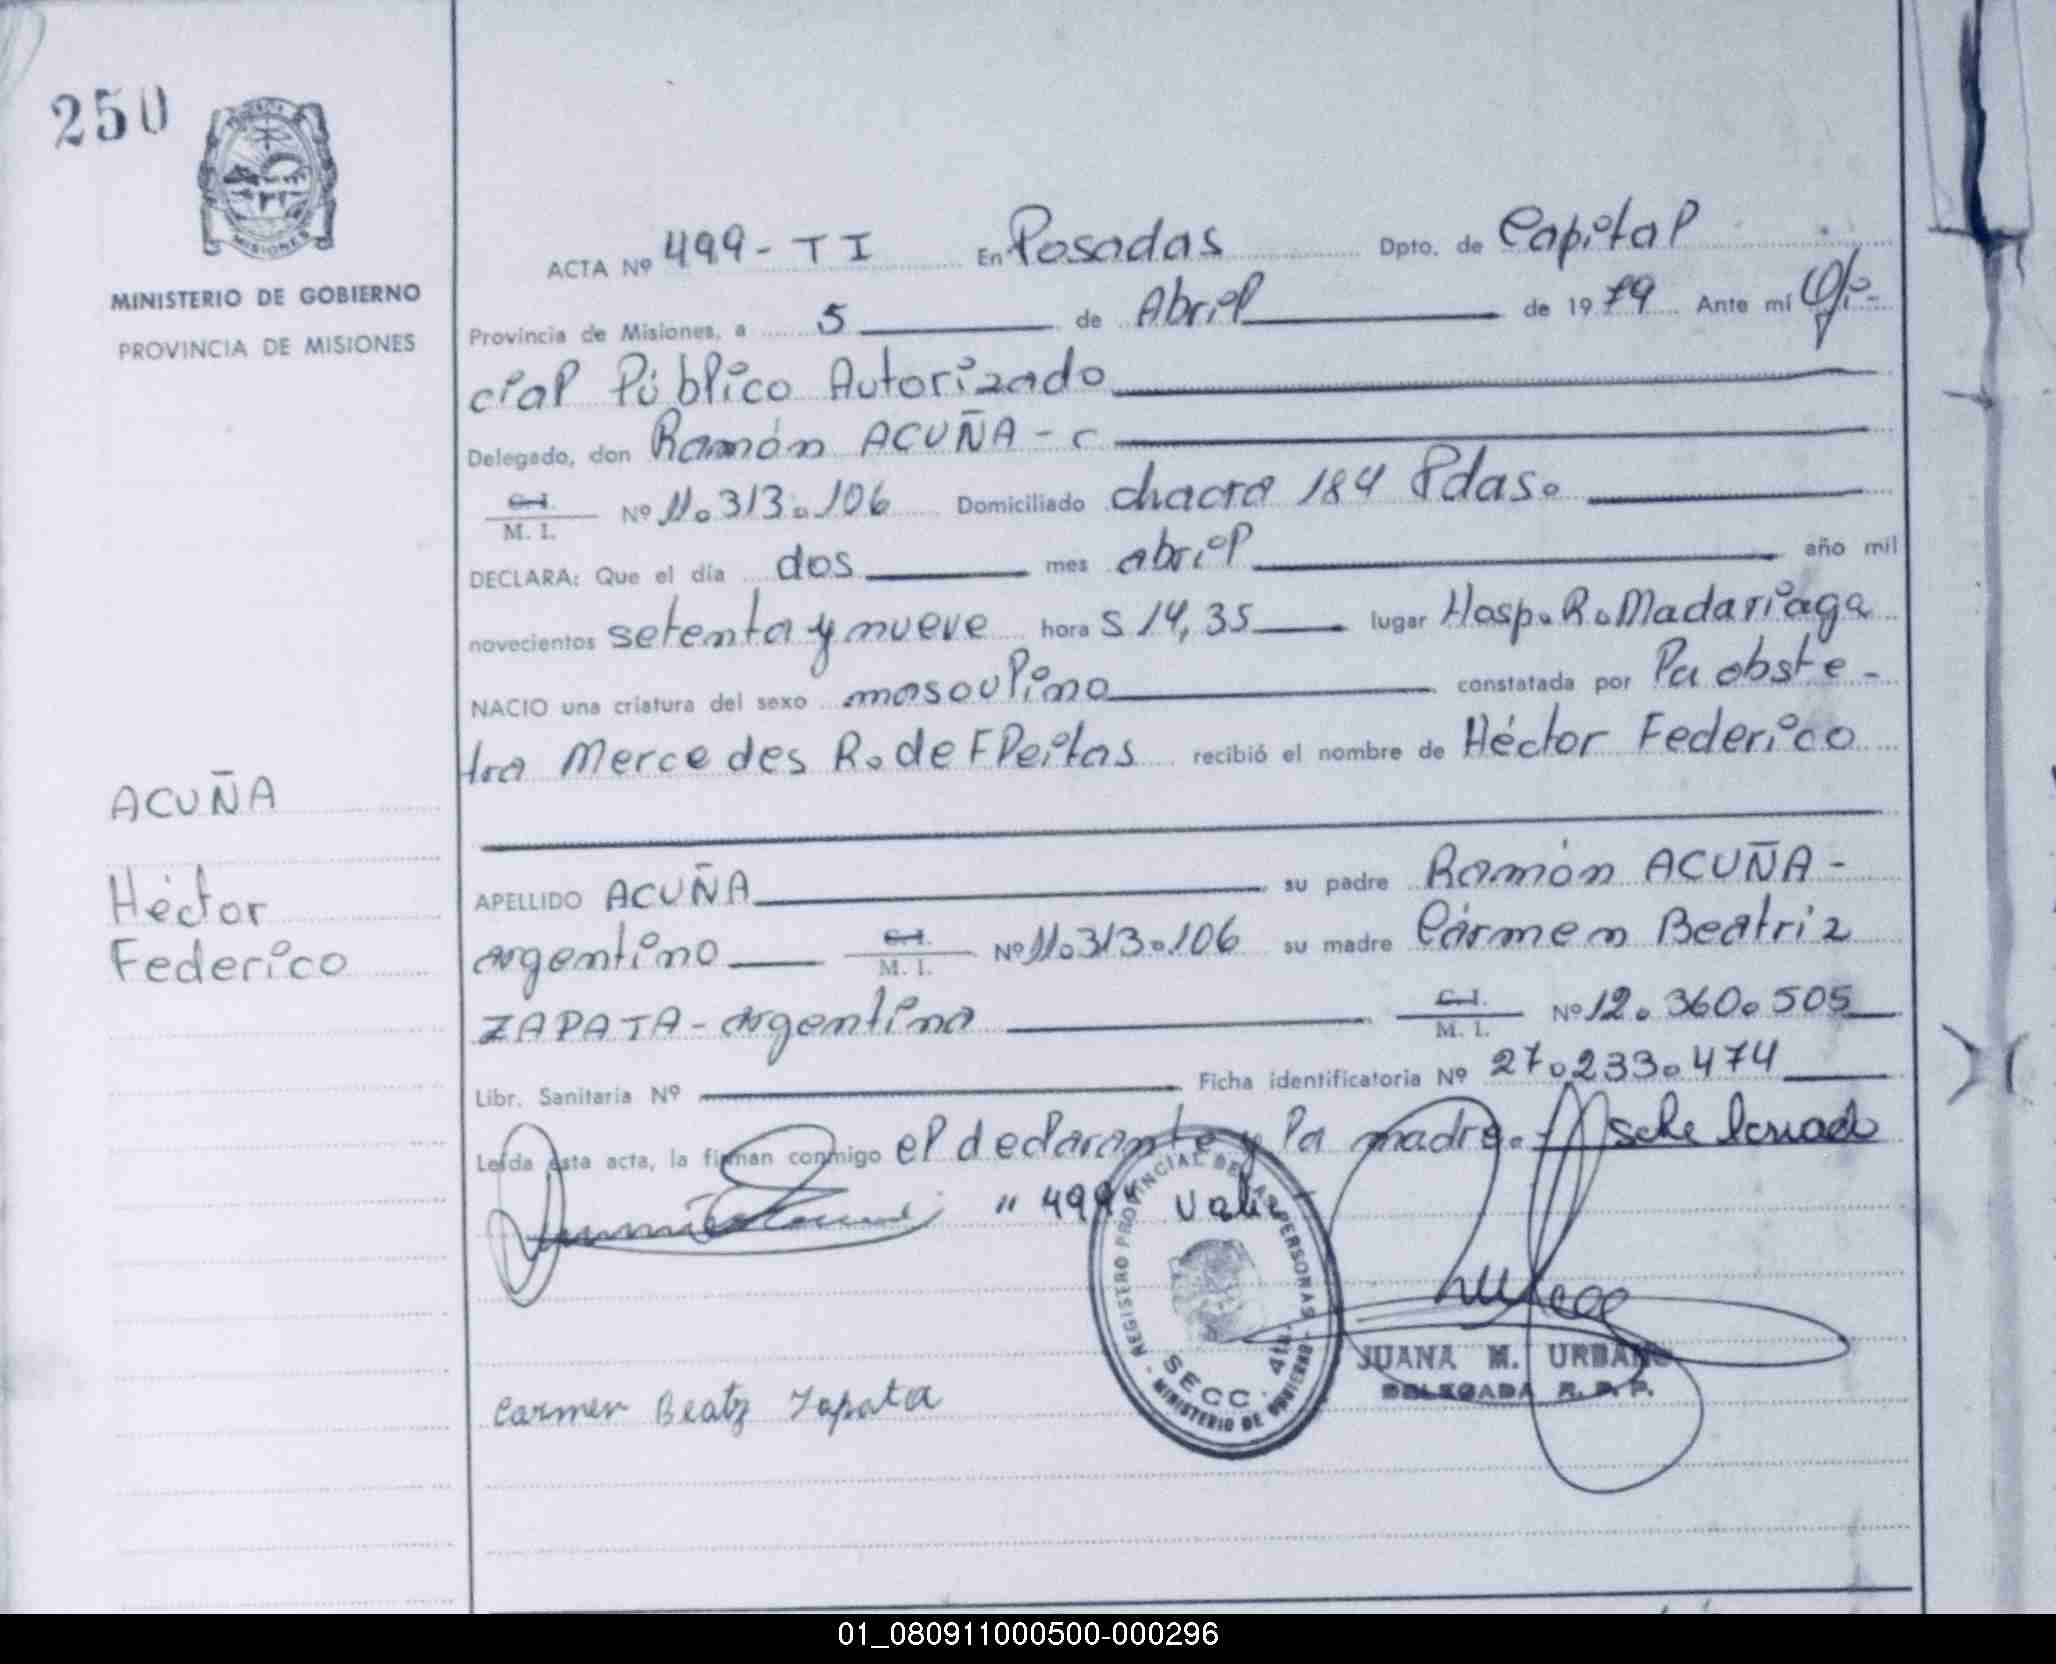 250
MISIONES
MINISTERIO DE GOBIERNO
PROVINCIA DE MISIONES
ACUÑA
Héctor
Federico
ACTA Nº 499 - T I En Posadas Dpto. de Capital
Provincia de Misiones, a 5 de Abril de 1979 Ante mí Ofi-
cial Público Autorizado
Delegado, don Ramón ACUÑA - c
C.I. M. I. Nº 11.313.106 Domiciliado chacra 184 Pdas.
DECLARA: Que el día dos mes abril año mil
novecientos setenta y nueve hora s 14,35 lugar Hosp. R. Madariaga
NACIO una criatura del sexo masculino constatada por la obste-
tra Mercedes R. de Fleitas recibió el nombre de Héctor Federico
APELLIDO ACUÑA su padre Ramón ACUÑA -
argentino C.I. M. I. Nº 11.313.106 su madre Cármen Beatriz
ZAPATA - argentina C.I. M. I. Nº 12.360.505
Libr. Sanitaria Nº Ficha identificatoria Nº 27.233.474
Leída esta acta, la firman conmigo el declarante y la madre.
"499" Vale
REGISTRO PROVINCIAL DE LAS PERSONAS - MINISTERIO DE GOBIERNO -
SECC. 4ta
JUANA M. URBANO
DELEGADA R. P. P.
Carmen Beatz Zapata
01_080911000500-000296